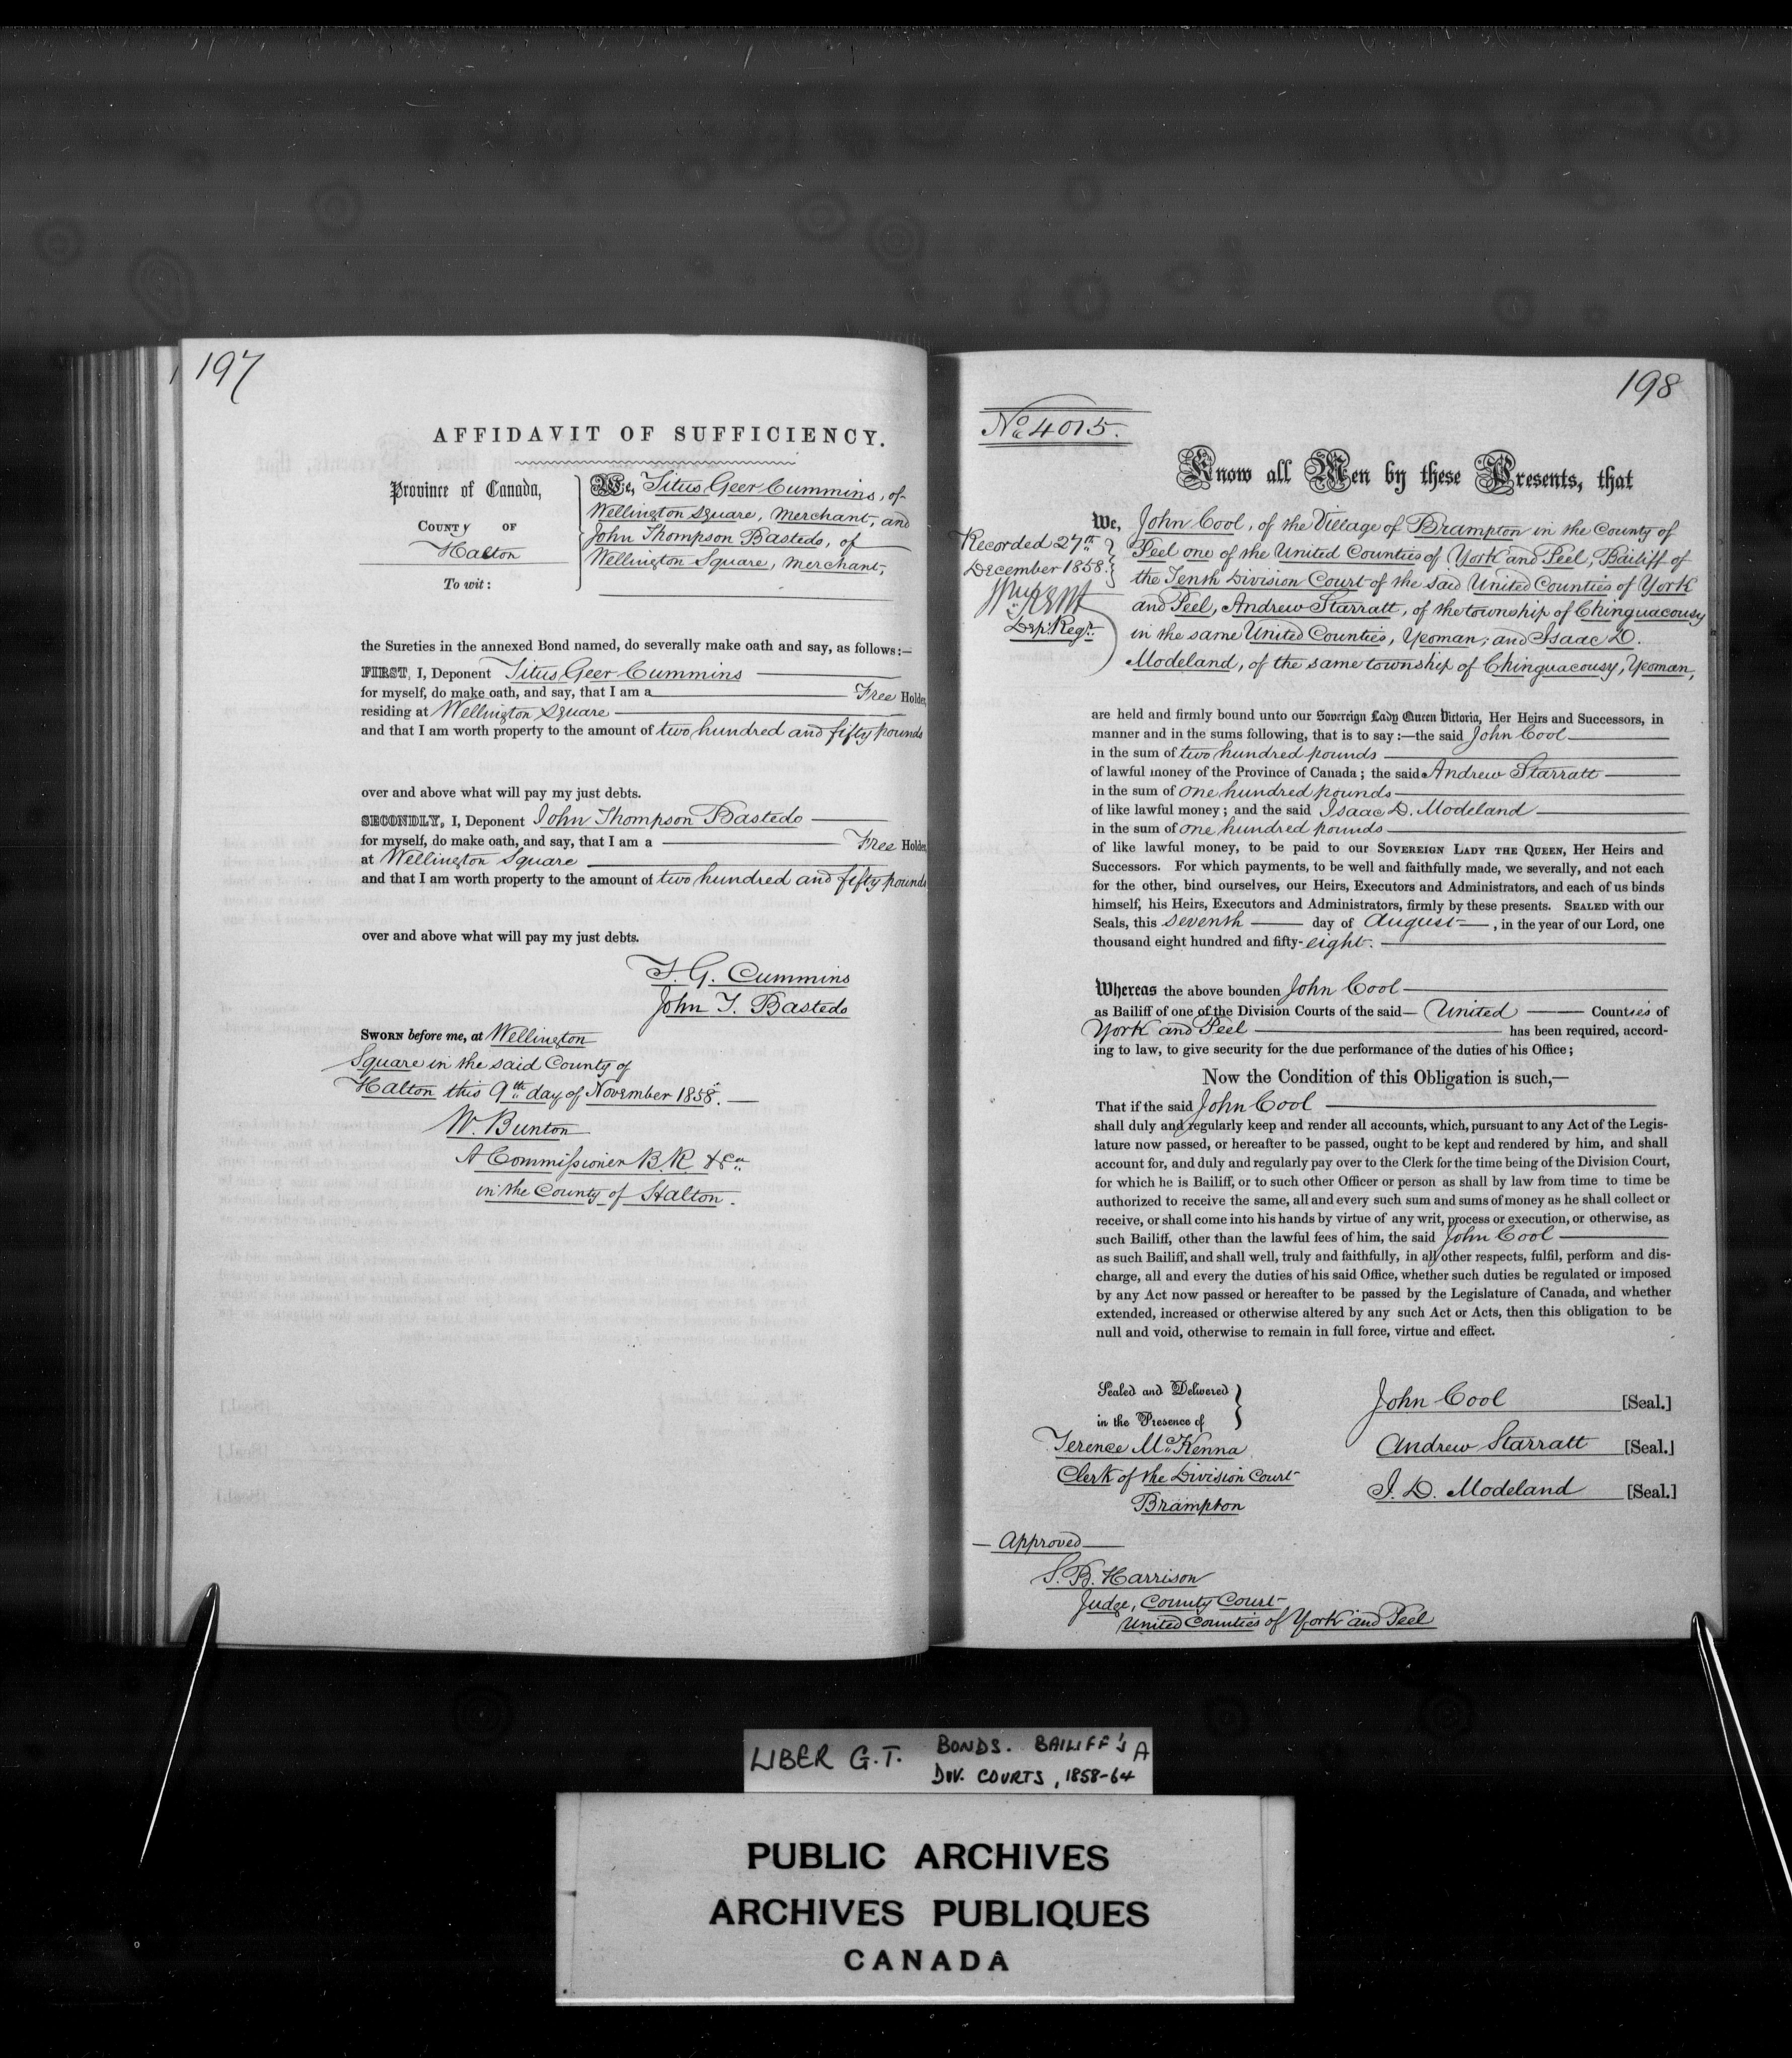 197
AFFIDAVIT OF SUFFICIENCY.
Province of Canada,
COUNTY OF
Halton
To wit:
We, Titus Geer Cummins, of
Wellington Square, Merchant, and
John Thompson Bastedo, of
Wellington Square, Merchant,
the Sureties in the annexed Bond named, do severally make oath and say, as follows:—
FIRST, I, Deponent Titus Geer Cummins
for myself, do make oath, and say, that I am a Free Holder,
residing at Wellington Square
and that I am worth property to the amount of two hundred and fifty pounds
over and above what will pay my just debts.
SECONDLY, I, Deponent John Thompson Bastedo
for myself, do make oath, and say, that I am a Free Holder,
at Wellington Square
and that I am worth property to the amount of two hundred and fifty pounds
over and above what will pay my just debts.
T. G. Cummins
John T. Bastedo
SWORN before me, at Wellington
Square in the said County of
Halton this 9th day of November 1858.—
W. Bunton
A Commissioner B.R. &ca
in the County of Halton.
198
No 4015.
Know all Men by these Presents, that
Recorded 27th
December 1858.
Dep. Regr.
We, John Cool, of the Village of Brampton in the County of
Peel one of the United Counties of York and Peel, Bailiff of
the Tenth Division Court of the said United Counties of York
and Peel, Andrew Starratt, of the township of Chinguacousy
in the same United Counties, Yeoman; and Isaac D.
Modeland, of the same township of Chinguacousy, Yeoman,
are held and firmly bound unto our Sovereign Lady Queen Victoria, Her Heirs and Successors, in
manner and in the sums following, that is to say:—the said John Cool
in the sum of two hundred pounds
of lawful money of the Province of Canada; the said Andrew Starratt
in the sum of one hundred pounds
of like lawful money; and the said Isaac D. Modeland
in the sum of one hundred pounds
of like lawful money, to be paid to our SOVEREIGN LADY THE QUEEN, Her Heirs and
Successors. For which payments, to be well and faithfully made, we severally, and not each
for the other, bind ourselves, our Heirs, Executors and Administrators, and each of us binds
himself, his Heirs, Executors and Administrators, firmly by these presents. SEALED with our
Seals, this seventh day of August, in the year of our Lord, one
thousand eight hundred and fifty-eight.
Whereas the above bounden John Cool
as Bailiff of one of the Division Courts of the said United Counties of
York and Peel has been required, accord-
ing to law, to give security for the due performance of the duties of his Office;
Now the Condition of this Obligation is such,—
That if the said John Cool
shall duly and regularly keep and render all accounts, which, pursuant to any Act of the Legis-
lature now passed, or hereafter to be passed, ought to be kept and rendered by him, and shall
account for, and duly and regularly pay over to the Clerk for the time being of the Division Court,
for which he is Bailiff, or to such other Officer or person as shall by law from time to time be
authorized to receive the same, all and every such sum and sums of money as he shall collect or
receive, or shall come into his hands by virtue of any writ, process or execution, or otherwise, as
such Bailiff, other than the lawful fees of him, the said John Cool
as such Bailiff, and shall well, truly and faithfully, in all other respects, fulfil, perform and dis-
charge, all and every the duties of his said Office, whether such duties be regulated or imposed
by any Act now passed or hereafter to be passed by the Legislature of Canada, and whether
extended, increased or otherwise altered by any such Act or Acts, then this obligation to be
null and void, otherwise to remain in full force, virtue and effect.
Sealed and Delivered
in the Presence of
Terence McKenna
Clerk of the Division Court
Brampton
John Cool [Seal.]
Andrew Starratt [Seal.]
I. D. Modeland [Seal.]
— Approved —
S. B. Harrison
Judge, County Court
United Counties of York and Peel
LIBER G.T. BONDS. BAILIFF'S A
DIV. COURTS, 1858-64
PUBLIC ARCHIVES
ARCHIVES PUBLIQUES
CANADA